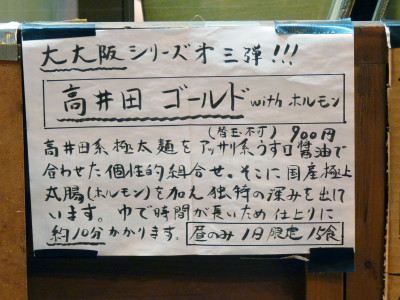 大大阪シリーズオ三弾!!!
高井田 ゴールド with ホルモン
(替玉不可) 900円
高井田系極太麺をアッサリ系うす口醤油で
合わせた個性的組合せ。そこに国産極上
丸腸(ホルモン)を加え独特の深みを出して
います。ゆで時間が長いため仕上りに
約10分かかります。 昼のみ 1日限定 15食